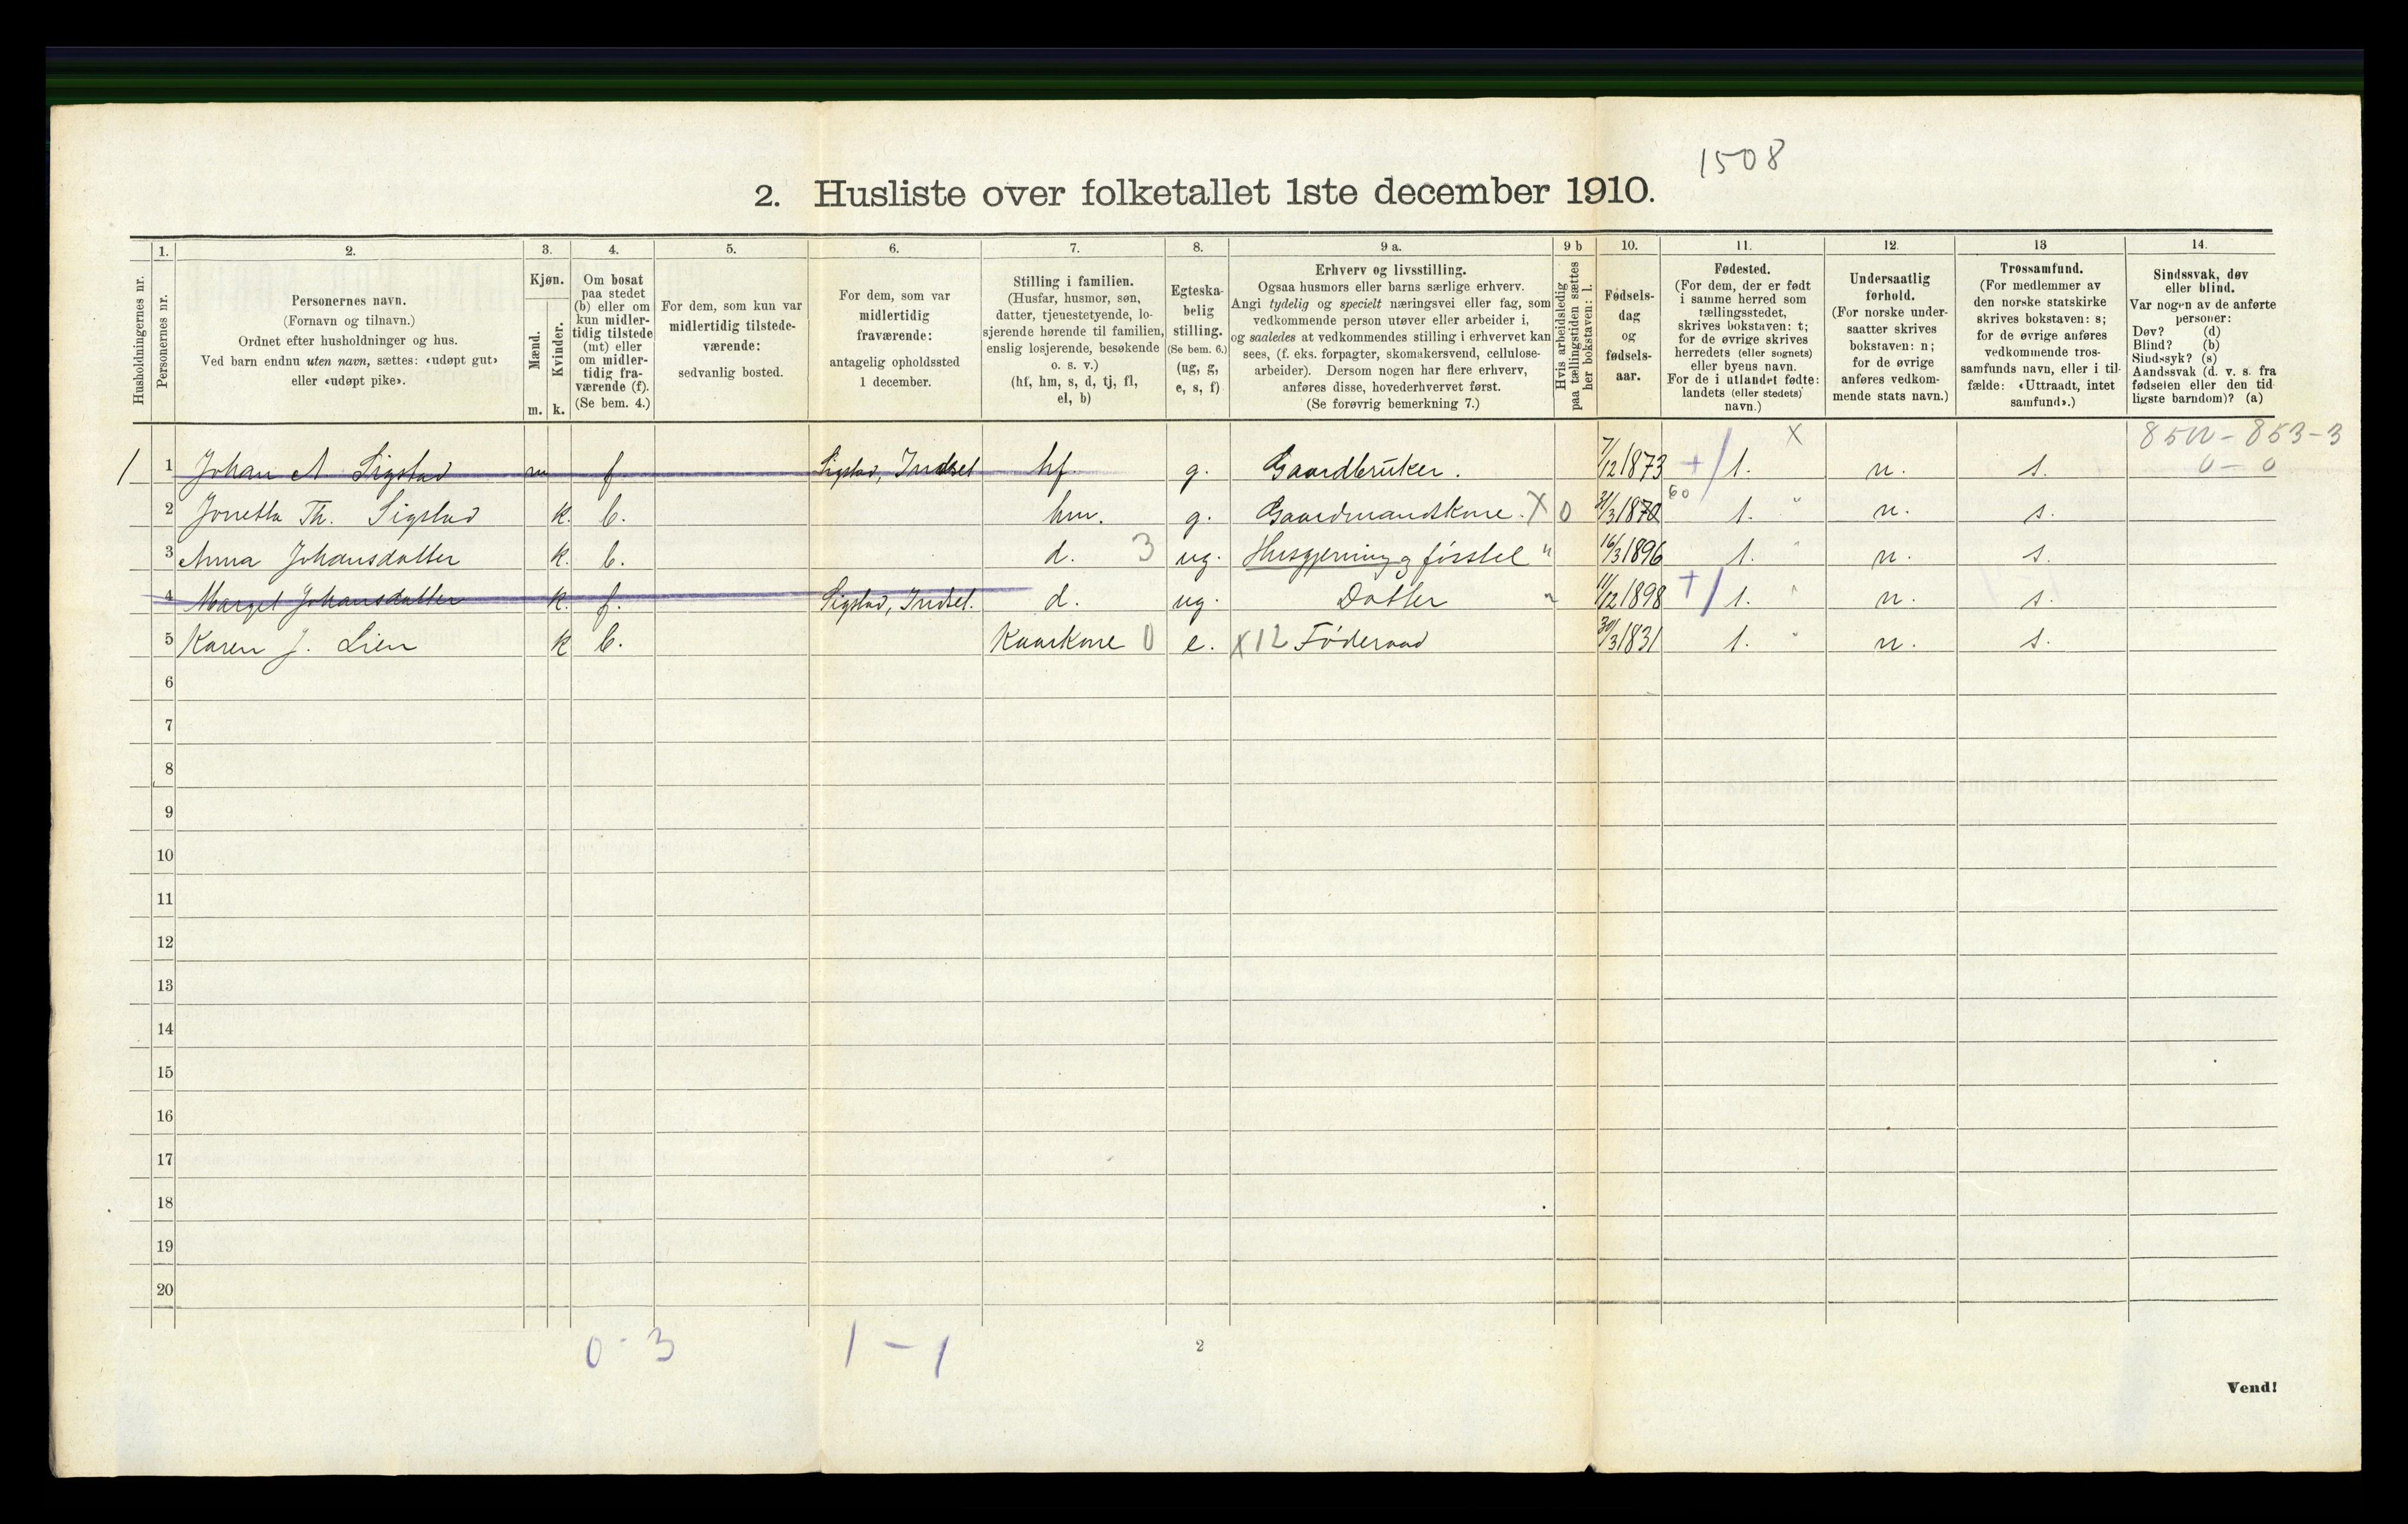 1508
2. Husliste over folketallet 1ste december 1910.
Husholdningernes nr.
1.
Personernes nr.
2.
Personernes navn.
(Fornavn og tilnavn.)
Ordnet efter husholdninger og hus.
Ved barn endnu uten navn, sættes: «udøpt gut»
eller «udøpt pike».
3.
Kjøn.
Mænd.
Kvinder.
m. k.
4.
Om bosat
paa stedet
(b) eller om
kun midler-
tidig tilstede
(mt) eller
om midler-
tidig fra-
værende (f).
(Se bem. 4.)
5.
For dem, som kun var
midlertidig tilstede-
værende:
sedvanlig bosted.
6.
For dem, som var
midlertidig
fraværende:
antagelig opholdssted
1 december.
7.
Stilling i familien.
(Husfar, husmor, søn,
datter, tjenestetyende, lo-
sjerende hørende til familien,
enslig losjerende, besøkende
o. s. v.)
(hf, hm, s, d, tj, fl,
el, b)
8.
Egteska-
belig
stilling.
(Se bem. 6.)
(ug, g,
e, s, f)
9 a.
Erhverv og livsstilling.
Ogsaa husmors eller barns særlige erhverv.
Angi tydelig og specielt næringsvei eller fag, som
vedkommende person utøver eller arbeider i,
og saaledes at vedkommendes stilling i erhvervet kan
sees, (f. eks. forpagter, skomakersvend, cellulose-
arbeider). Dersom nogen har flere erhverv,
anføres disse, hovederhvervet først.
(Se forøvrig bemerkning 7.)
9 b
Hvis arbeidsledig
paa tællingstiden sættes
her bokstaven: l.
10.
Fødsels-
dag
og
fødsels-
aar.
11.
Fødested.
(For dem, der er født
i samme herred som
tællingsstedet,
skrives bokstaven: t;
for de øvrige skrives
herredets (eller sognets)
eller byens navn.
For de i utlandet fødte:
landets (eller stedets)
navn.)
12.
Undersaatlig
forhold.
(For norske under-
saatter skrives
bokstaven: n;
for de øvrige
anføres vedkom-
mende stats navn.)
13
Trossamfund.
(For medlemmer av
den norske statskirke
skrives bokstaven: s;
for de øvrige anføres
vedkommende tros-
samfunds navn, eller i til-
fælde: «Uttraadt, intet
samfund».)
14.
Sindssvak, døv
eller blind.
Var nogen av de anførte
personer:
Døv? (d)
Blind? (b)
Sindssyk? (s)
Aandssvak (d. v. s. fra
fødselen eller den tid-
ligste barndom)? (a)
853-3
1 1 Johan A Sigstad m f Sigstad, Indset hf. g. Gaardbruker. 7/12 1873 + / t. X n. s. 0 - 0
2 Th. Sigstad k. b. hm. g. Gaardmandskone. X 0 31/3 1870 60 t. " n. s.
3 Anna Johansdatter k. b. d. 3 ug. Husgjerning og " 16/3 1896 t. " n. s.
4 Marget Johansdatter k. f. Sigstad, Indset. d. ug. Datter " 11/12 1898 + / t. " n. s.
5 Karen J. Lien k b. Kaarkone 0 e. X12 Føderaad 30/3 1831 t. " n. s.
6
7
8
9
10
11
12
13
14
15
16
17
18
19
20
0 - 3 1 - 1
2
Vend!